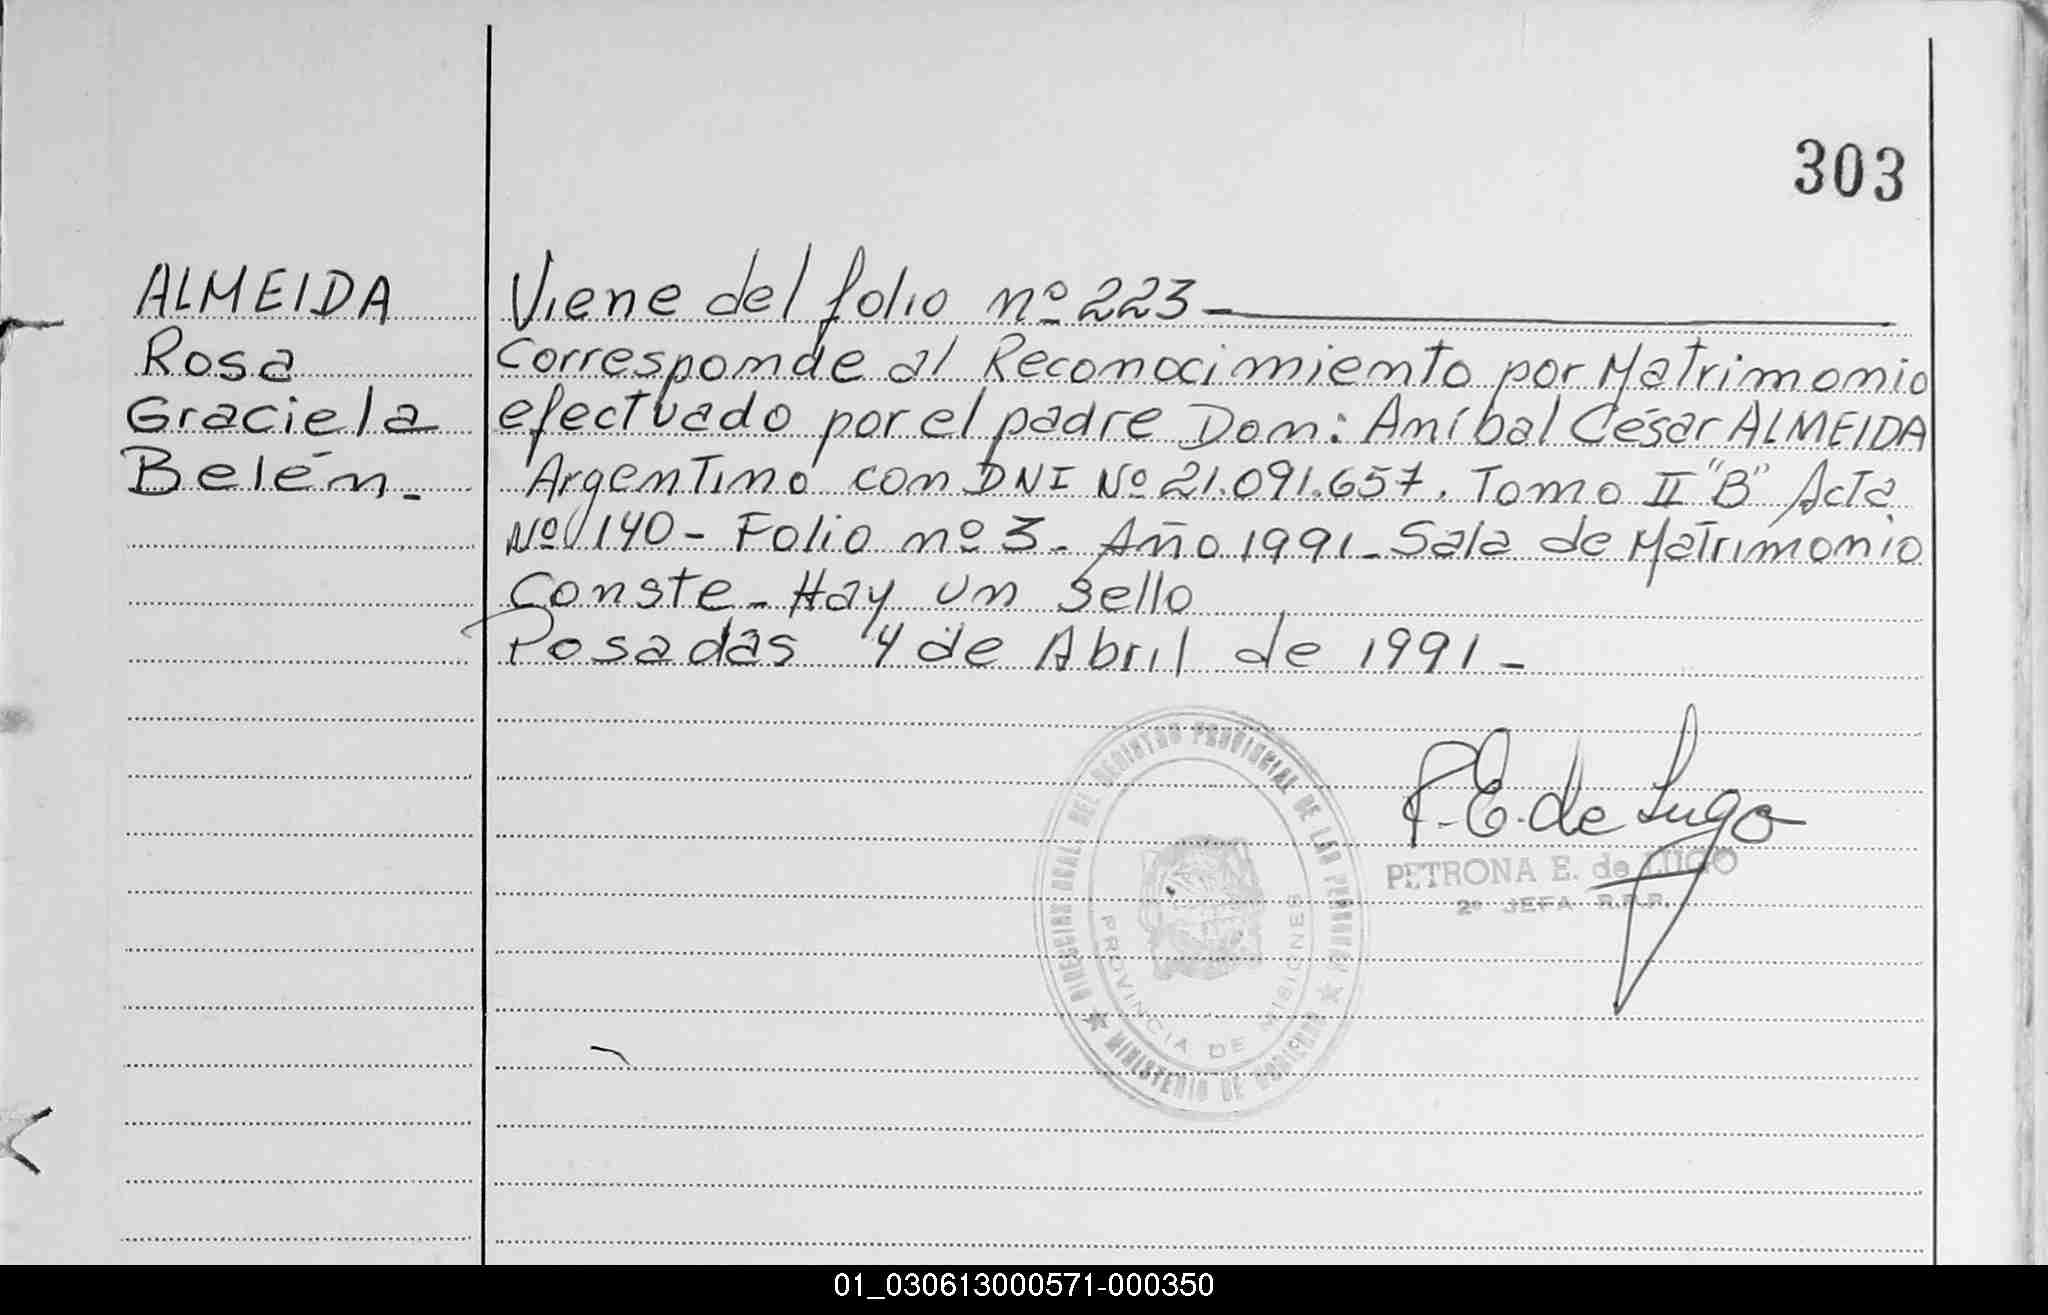 303
ALMEIDA
Rosa
Graciela
Belén.-
Viene del folio nº 223 -
Corresponde al Reconocimiento por Matrimonio
efectuado por el padre Don: Aníbal César ALMEIDA
Argentino con DNI Nº 21.091.657. Tomo II "B" Acta
Nº 140 - Folio nº 3 - Año 1991 - Sala de Matrimonio
Conste - Hay un sello
Posadas 4 de Abril de 1991 -
P. E. de Lugo
PETRONA E. de LUGO
2º JEFA R.P.P.
DIRECCION GRAL. DEL REGISTRO PROVINCIAL DE LAS PERSONAS
PROVINCIA DE MISIONES
MINISTERIO DE GOBIERNO
01_030613000571-000350